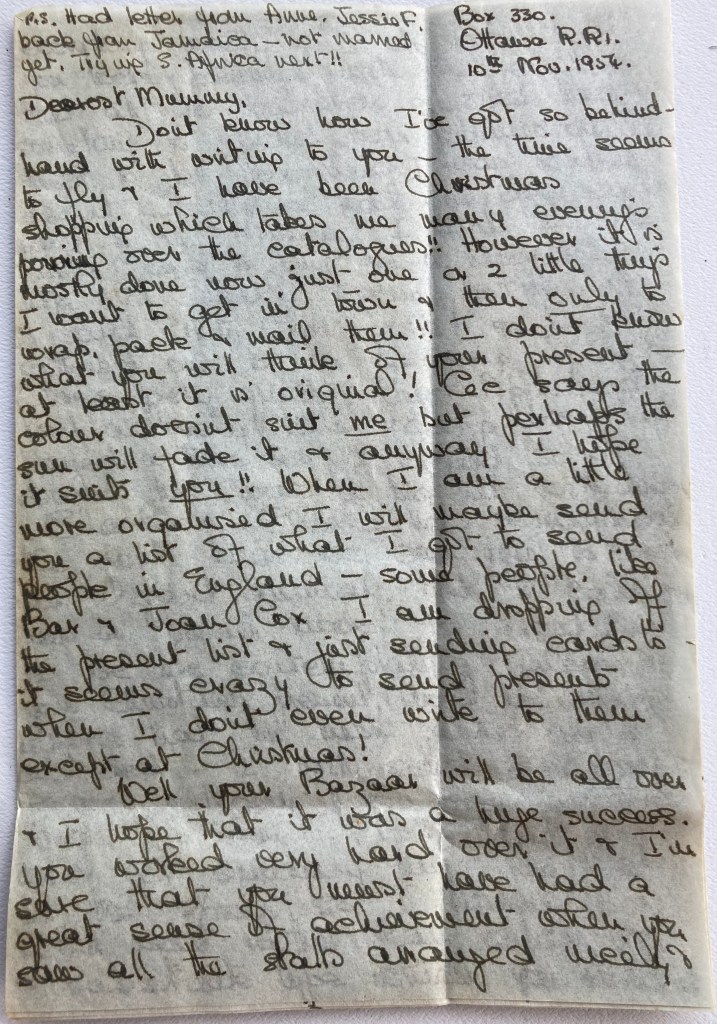 P.S. Had letter from Anne, Jessie F.
back from Jamaica – not married
yet. Trying S. Africa next!!
Box 330.
Ottawa R.R.1.
10th Nov. 1954.
Dearest Mummy,
Don't know how I've got so behind-
hand with writing to you – the time seems
to fly & I have been Christmas
shopping which takes me many evenings
poring over the catalogues!! However it is
mostly done now just one or 2 little things
I want to get in town & then only to
wrap, pack & mail them!! I don't know
what you will think of your present –
at least it is original! Cee says the
colour doesn't suit me but perhaps the
sun will fade it & anyway I hope
it suits you!! When I am a little
more organised I will maybe send
you a list of what I got to send
people in England – some people, like
Bar & Joan Cox I am dropping off
the present list & just sending cards to –
it seems crazy to send presents
when I don't even write to them
except at Christmas!
Well your Bazaar will be all over
& I hope that it was a huge success.
you worked very hard over it & I'm
sure that you must have had a
great sense of achievement when you
saw all the stalls arranged